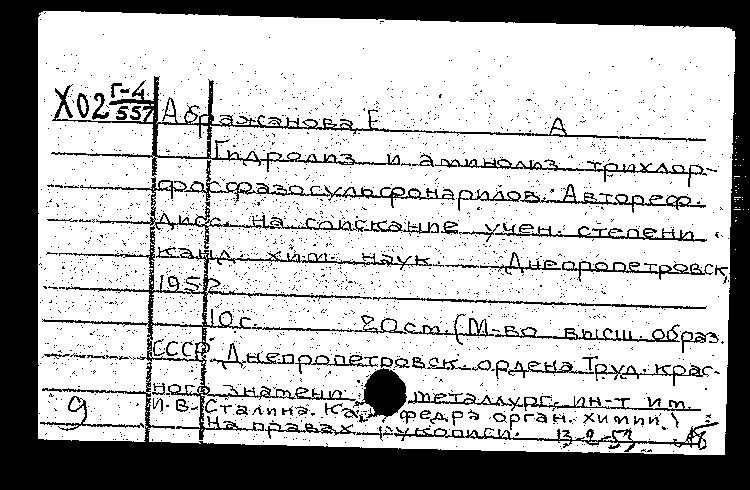 Х02 Г-4/557 Абражанова, Е А
Гидролиз и аминолиз трихлор-
фосфазосульфонарилов. Автореф.
дисс. на соискание учен. степени
канд. хим. наук. Днепропетровск,
195
10 с. 20 см. (М-во высш. образ.
СССР. Днепропетровск. ордена Труд. крас-
ного знамени металлург. ин-т им.
И. В. Сталина. Кафедра орган. химии.)
9 На правах рукописи.